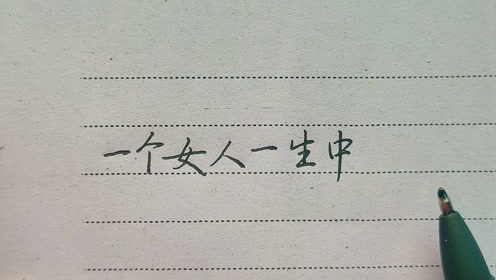 一个女人一生中